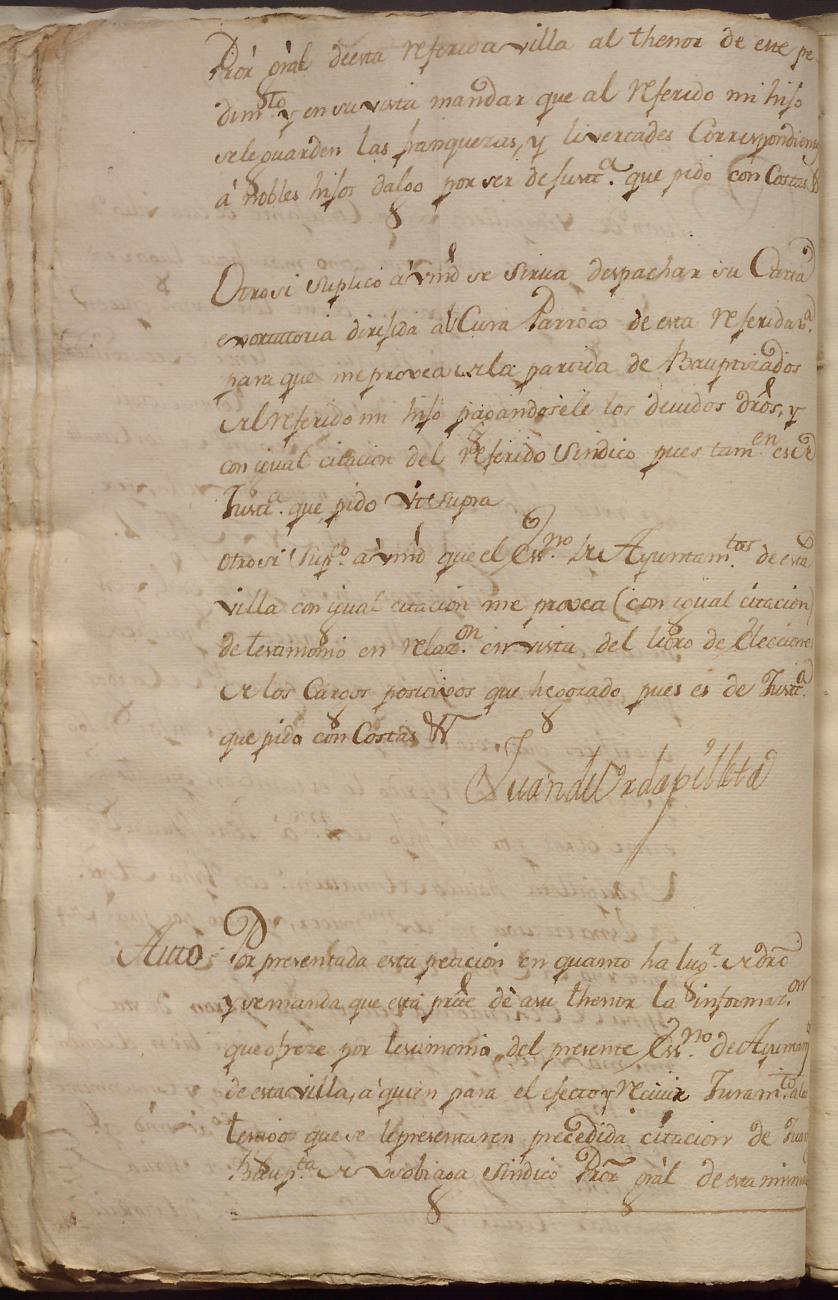 Prör gräl deesta referida villa al thenor de este pe
dim.to y en su vista mandar que al referido mi hijo
sele guarden las franquezas, y livertades Correspondien
á nobles hijos dalgo por ser de Justt.a que pido con Costas
Otrosi suplico á Vmd se sirua despachar su Carta
exortatoria dirijida al Cura Parroco de esta referida v.a
para que me provea de la partida de Bauptizados
del referido mi hijo pagandosele los devidos drõs, y
con igual citacion del referido Sindico pues tam.en es de
Justt.a que pido Vt Supra
Otrosi sup.co a Vmd que el Ess.no de Ayuntam.tos de esta
villa con igual citacion me provea (con igual citacion)
de testimonio en relaz.on en vista del libro de Elecciones
de los Cargos posicivos que he gozado pues es de Justt.a
que pido con Costas &
Juan de Urdapilleta
Auto. Por presentada esta peticion en quanto ha lug.r de dro
y se manda que esta parte dè a su thenor la informaz.on
que ofreze por testimonio del presente Ess.no de Ayuntam
de esta villa, a quien para el efecto y reciuir Juram.to a los
testigos que se le presentaren precedida citacion de Juan
Baup.ta de Sindico Prör gräl de esta misma